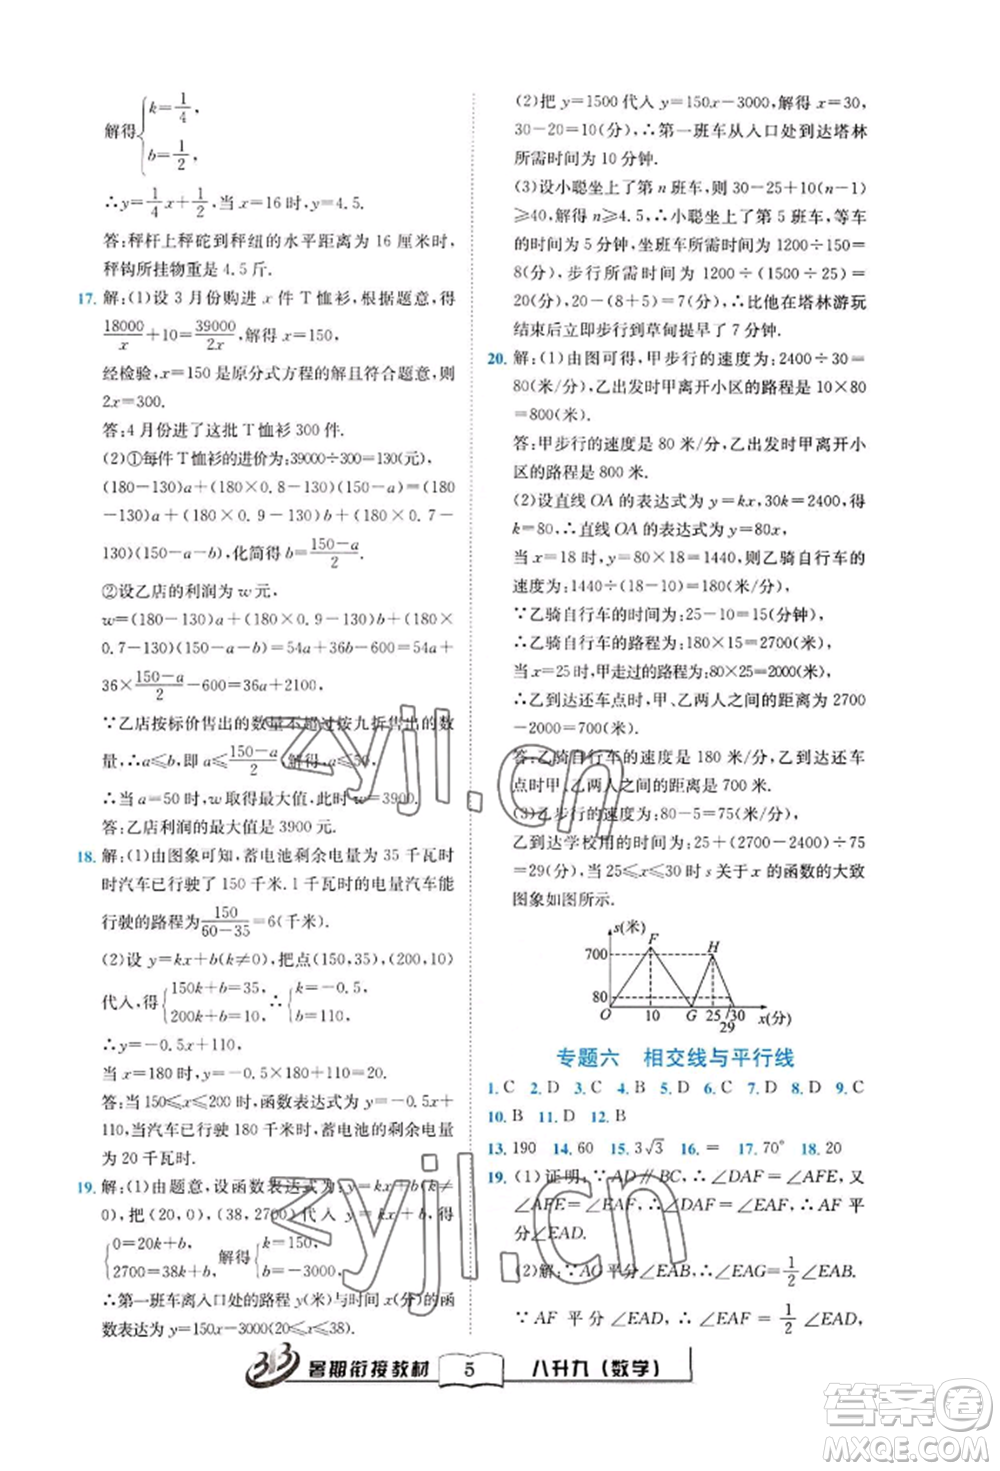 解得{k=1/4,
b=1/2,
∴y=1/4x+1/2,当 x=16 时,y=4.5.
答:秤杆上秤砣到秤纽的水平距离为 16 厘米时,
秤钩所挂物重是 4.5 斤.
17. 解:(1)设 3 月份购进 x 件 T 恤衫,根据题意,得
18000/x+10=39000/2x,解得 x=150,
经检验,x=150 是原分式方程的解且符合题意,则
2x=300.
答:4 月份进了这批 T 恤衫 300 件.
(2)①每件 T 恤衫的进价为:39000÷300=130(元),
(180-130)a+(180×0.8-130)(150-a)=(180
-130)a+(180×0.9-130)b+(180×0.7-
130)(150-a-b),化简得 b=150-a/2.
②设乙店的利润为 w 元,
w=(180-130)a+(180×0.9-130)b+(180×
0.7-130)(150-a-b)=54a+36b-600=54a+
36×150-a/2-600=36a+2100,
∵乙店按标价售出的数量不超过按九折售出的数量,
∴a≤b,即 a≤150-a/2,解得,a≤50,
∴当 a=50 时,w 取得最大值,此时 w=3900.
答:乙店利润的最大值是 3900 元.
18. 解:(1)由图象可知,蓄电池剩余电量为 35 千瓦时
时汽车已行驶了 150 千米.1 千瓦时的电量汽车能
行驶的路程为150/60-35=6(千米).
(2)设 y=kx+b(k≠0),把点(150,35),(200,10)
代入,得{150k+b=35, ∴{k=-0.5,
200k+b=10, b=110,
∴y=-0.5x+110,
当 x=180 时,y=-0.5×180+110=20.
答:当150≤x≤200 时,函数表达式为 y=-0.5x+
110,当汽车已行驶 180 千米时,蓄电池的剩余电量
为 20 千瓦时.
19. 解:(1)由题意,设函数表达式为:y=kx+b(k≠
0),把(20,0),(38,2700)代入 y=kx+b,得
{0=20k+b, 解得{k=150,
2700=38k+b, b=-3000,
∴第一班车离入口处的路程 y(米)与时间 x(分)的函
数表达为 y=150x-3000(20≤x≤38).
(2)把 y=1500 代入 y=150x-3000,解得 x=30,
30-20=10(分),∴第一班车从入口处到达塔林
所需时间为 10 分钟.
(3)设小聪坐上了第 n 班车,则 30-25+10(n-1)
≥40,解得 n≥4.5,∴小聪坐上了第 5 班车,等车
的时间为 5 分钟,坐班车所需时间为 1200÷150=
8(分),步行所需时间:1200÷(1500÷25)=
20(分),20-(8+5)=7(分),∴比他在塔林游玩
结束后立即步行到草甸提早了 7 分钟.
20. 解:(1)由图可得,甲步行的速度为:2400÷30=
80(米/分),乙出发时甲离开小区的路程是 10×80
=800(米).
答:甲步行的速度是 80 米/分,乙出发时甲离开小
区的路程是 800 米.
(2)设直线 OA 的表达式为 y=kx,30k=2400,得
k=80,∴直线 OA 的表达式为 y=80x,
当 x=18 时,y=80×18=1440,则乙骑自行车的
速度为:1440÷(18-10)=180(米/分),
∵乙骑自行车的时间为:25-10=15(分钟),
∴乙骑自行车的路程为:180×15=2700(米),
当 x=25 时,甲走过的路程为:80×25=2000(米),
∴乙到达还车点时,甲、乙两人之间的距离为 2700
-2000=700(米).
答:乙骑自行车的速度是 180 米/分,乙到达还车
点时甲、乙两人之间的距离为 700 米.
(3)乙步行的速度为:80-5=75(米/分),
乙到达学校用的时间为:25+(2700-2400)÷75
=29(分),当25≤x≤30时 s 关于 x 的函数的大致
图象如图所示.
s(米)
F H
700
80
O 10 G 25 30 x(分)
29
专题六 相交线与平行线
1. C 2. D 3. C 4. B 5. C 6. C 7. D 8. D 9. C
10. B 11. D 12. B
13. 190 14. 60 15. 3√3 16. = 17. 70° 18. 20
19. (1)证明:∵AD∥BC,∴∠DAF=∠AFE,又
∠AFE=∠EAF,∴∠DAF=∠EAF,∴AF 平
分∠EAD.
(2)解:∵AG平分∠EAB,∴∠EAG=1/2∠EAB.
∵AF 平分∠EAD,∴∠EAF=1/2∠EAD,
暑期衔接教材 5 八升九(数学)
zyjl.cn
zyjl.cn
答案圈
MXQE.COM